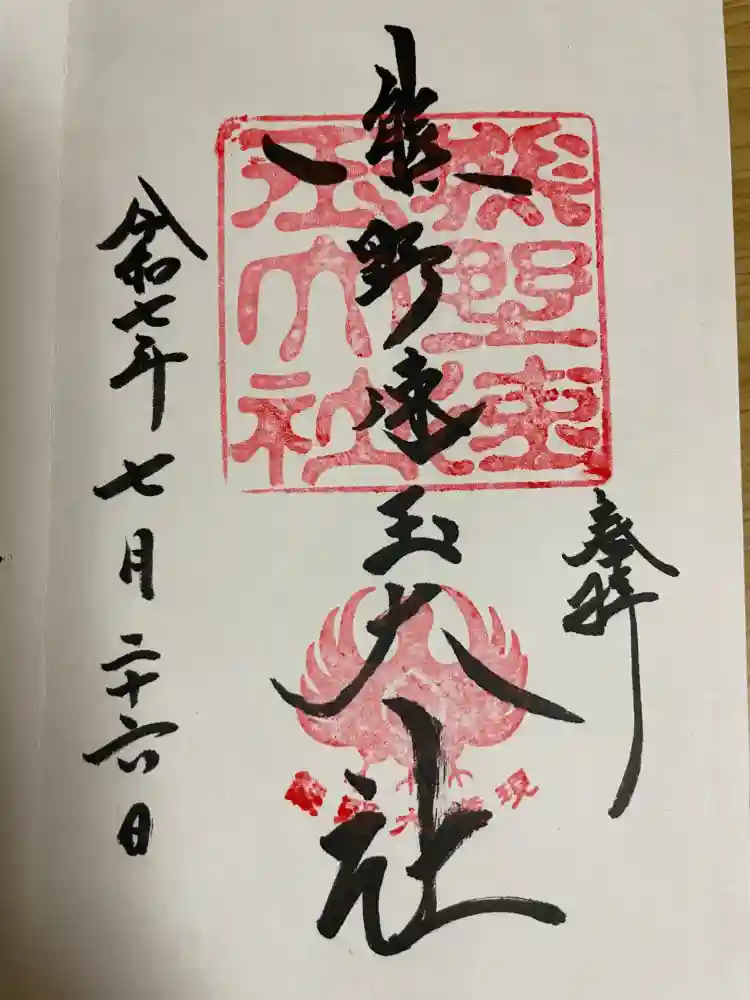 奉拝
熊野速玉大社
熊野速
玉大社
令和七年七月二十六日